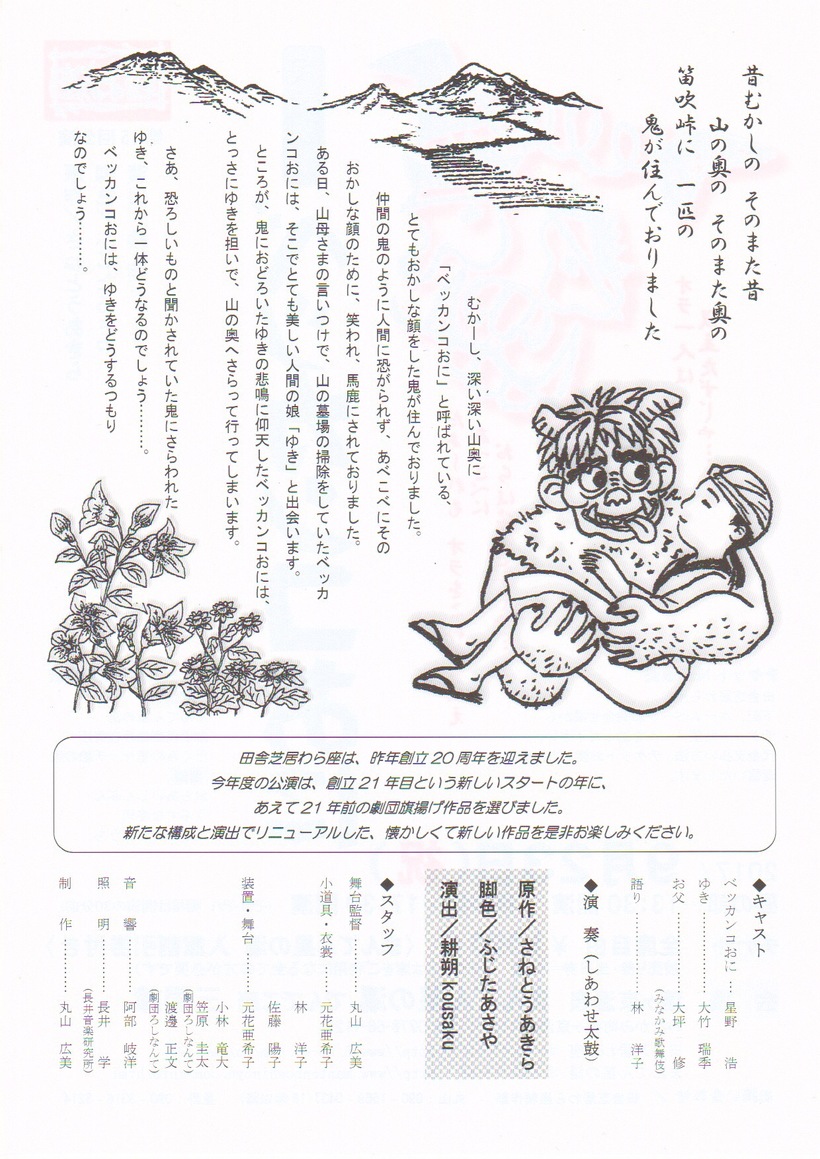 昔むかしの そのまた昔
山の奥の そのまた奥の
笛吹峠に 一匹の
鬼が住んでおりました
むかーし、深い深い山奥に
「ベッカンコおに」と呼ばれている、
とてもおかしな顔をした鬼が住んでおりました。
仲間の鬼のように人間に恐がられず、あべこべにその
おかしな顔のために、笑われ、馬鹿にされておりました。
ある日、山母さまの言いつけで、山の墓場の掃除をしていたベッカ
ンコおには、そこでとても美しい人間の娘「ゆき」と出会います。
ところが、鬼におどろいたゆきの悲鳴に仰天したベッカンコおには、
とっさにゆきを担いで、山の奥へさらって行ってしまいます。
さあ、恐ろしいものと聞かされていた鬼にさらわれた
ゆき、これから一体どうなるのでしょう………。
ベッカンコおには、ゆきをどうするつもり
なのでしょう………。
田舎芝居わら座は、昨年創立20周年を迎えました。
今年度の公演は、創立21年目という新しいスタートの年に、
あえて21年前の劇団旗揚げ作品を選びました。
新たな構成と演出でリニューアルした、懐かしくて新しい作品を是非お楽しみください。
◆キャスト
ベッカンコおに……星野 浩
ゆき……………大竹 瑞季
お父……………大坪 修
(みなかみ歌舞伎)
語り……………林 洋子
◆演 奏(しあわせ太鼓)
原作／さねとうあきら
脚色／ふじたあさや
演出／耕朔 kousaku
◆スタッフ
舞台監督…………丸山 広美
小道具・衣裳……元花亜希子
林 洋子
佐藤 陽子
装置・舞台………元花亜希子
小林 竜大
笠原 圭太
(劇団ろしなんて)
渡邊 正文
(劇団ろしなんて)
音 響…………阿部 岐洋
照 明…………長井 学
(長井音楽研究所)
制 作…………丸山 広美